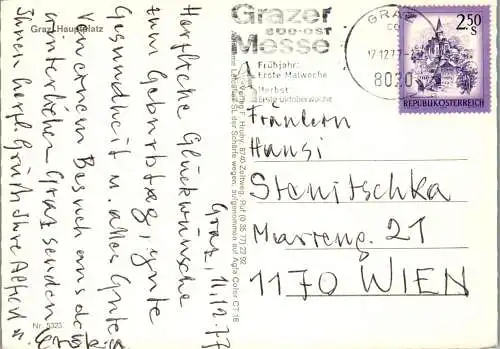 Graz, Hauptplatz
Graz, 11.12.77
Herzliche Glückwünsche
zum Geburtstag, gute
Gesundheit u. alles Gute
Von einem Besuch aus dem
winterlichen Graz senden
Ihnen herzl. Grüße Ihre
Nr. 5323
Grazer
SÜD-OST
Messe
Frühjahr:
Erste Maiwoche
Herbst
Erste Oktoberwoche
GRAZ
17.12.77
8020
2.50
S
REPUBLIK ÖSTERREICH
Fräulein
Hansi
Stanitschka
Marieng. 21
1170 WIEN
Verlag F. Hruby, 8740 Zeltweg, Ruf (0 35 77) 27 92
der Schärfe wegen, aufgenommen auf Agfa Color CT 18